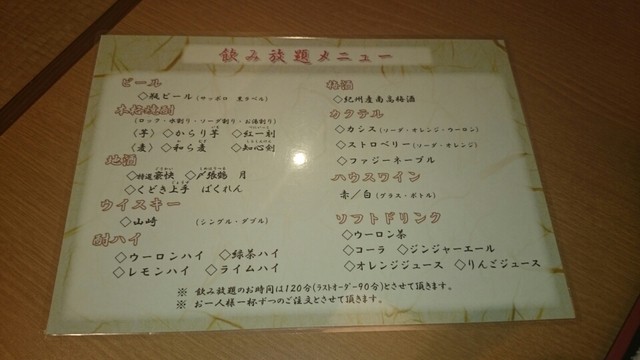 飲み放題メニュー
ビール
◇瓶ビール（サッポロ 黒ラベル）
本格焼酎
（ロック・水割り・ソーダ割り・お湯割り）
（芋）◇からり芋 ◇紅一刻
（麦）◇和ら麦 ◇知心剣
地酒
◇特選豪快 ◇〆張鶴 月
◇くどき上手 ばくれん
ウイスキー
◇山崎 （シングル・ダブル）
酎ハイ
◇ウーロンハイ ◇緑茶ハイ
◇レモンハイ ◇ライムハイ
梅酒
◇紀州産南高梅酒
カクテル
◇カシス（ソーダ・オレンジ・ウーロン）
◇ストロベリー（ソーダ・オレンジ）
◇ファジーネーブル
ハウスワイン
赤／白（グラス・ボトル）
ソフトドリンク
◇ウーロン茶
◇コーラ ◇ジンジャーエール
◇オレンジジュース ◇りんごジュース
※ 飲み放題のお時間は120分（ラストオーダー90分）とさせて頂きます。
※ お一人様一杯ずつのご注文とさせて頂きます。